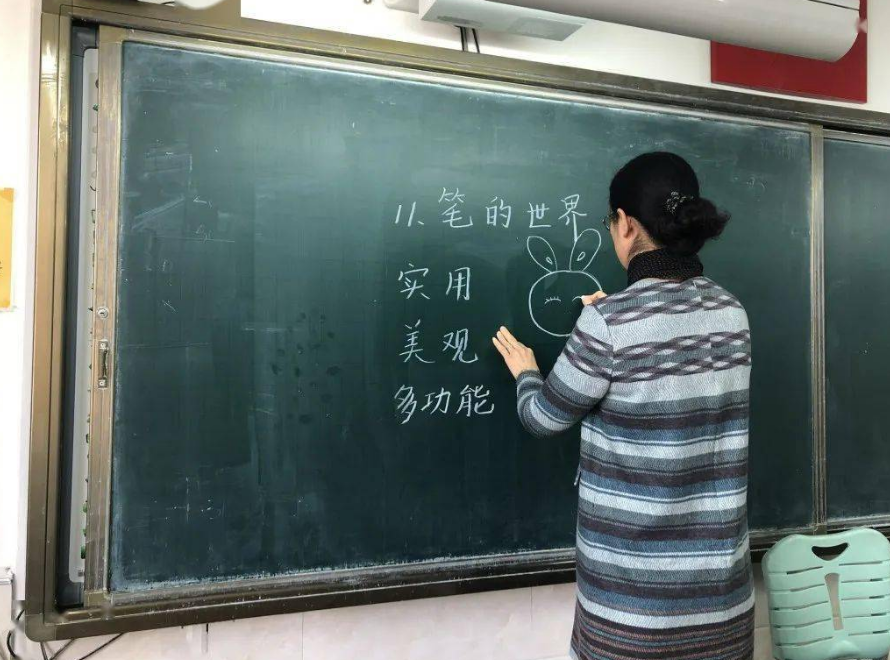 11、笔的世界
实用
美观
多功能